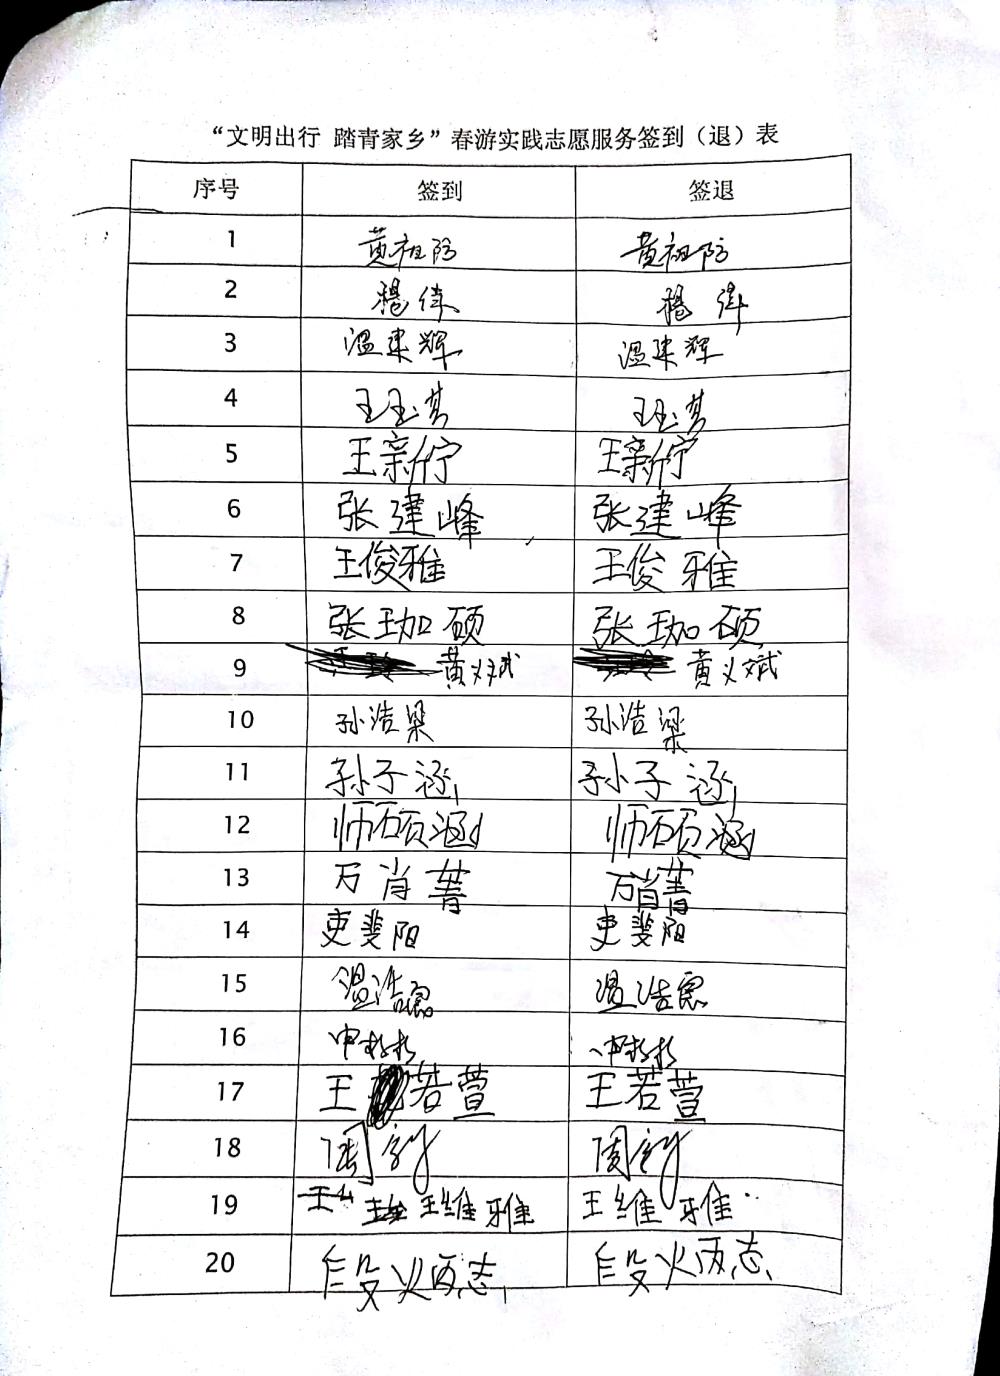 “文明出行 踏青家乡”春游实践志愿服务签到（退）表
序号 签到 签退
1 黄祖防 黄祖防
2 杨伟 杨伟
3 温来辉 温来辉
4 王玉其 王玉其
5 王新佇 王新佇
6 张建峰 张建峰
7 王俊雅 王俊雅
8 张珈硕 张珈硕
9 黄义斌 黄义斌
10 孙浩梁 孙浩梁
11 孙子涵 孙子涵
12 师硕涵 师硕涵
13 万肖菁 万肖菁
14 吏斐阳 吏斐阳
15 温浩 温浩
16 申 申
17 王若萱 王若萱
18 周 周
19 王维雅 王维雅
20 段炳志 段炳志